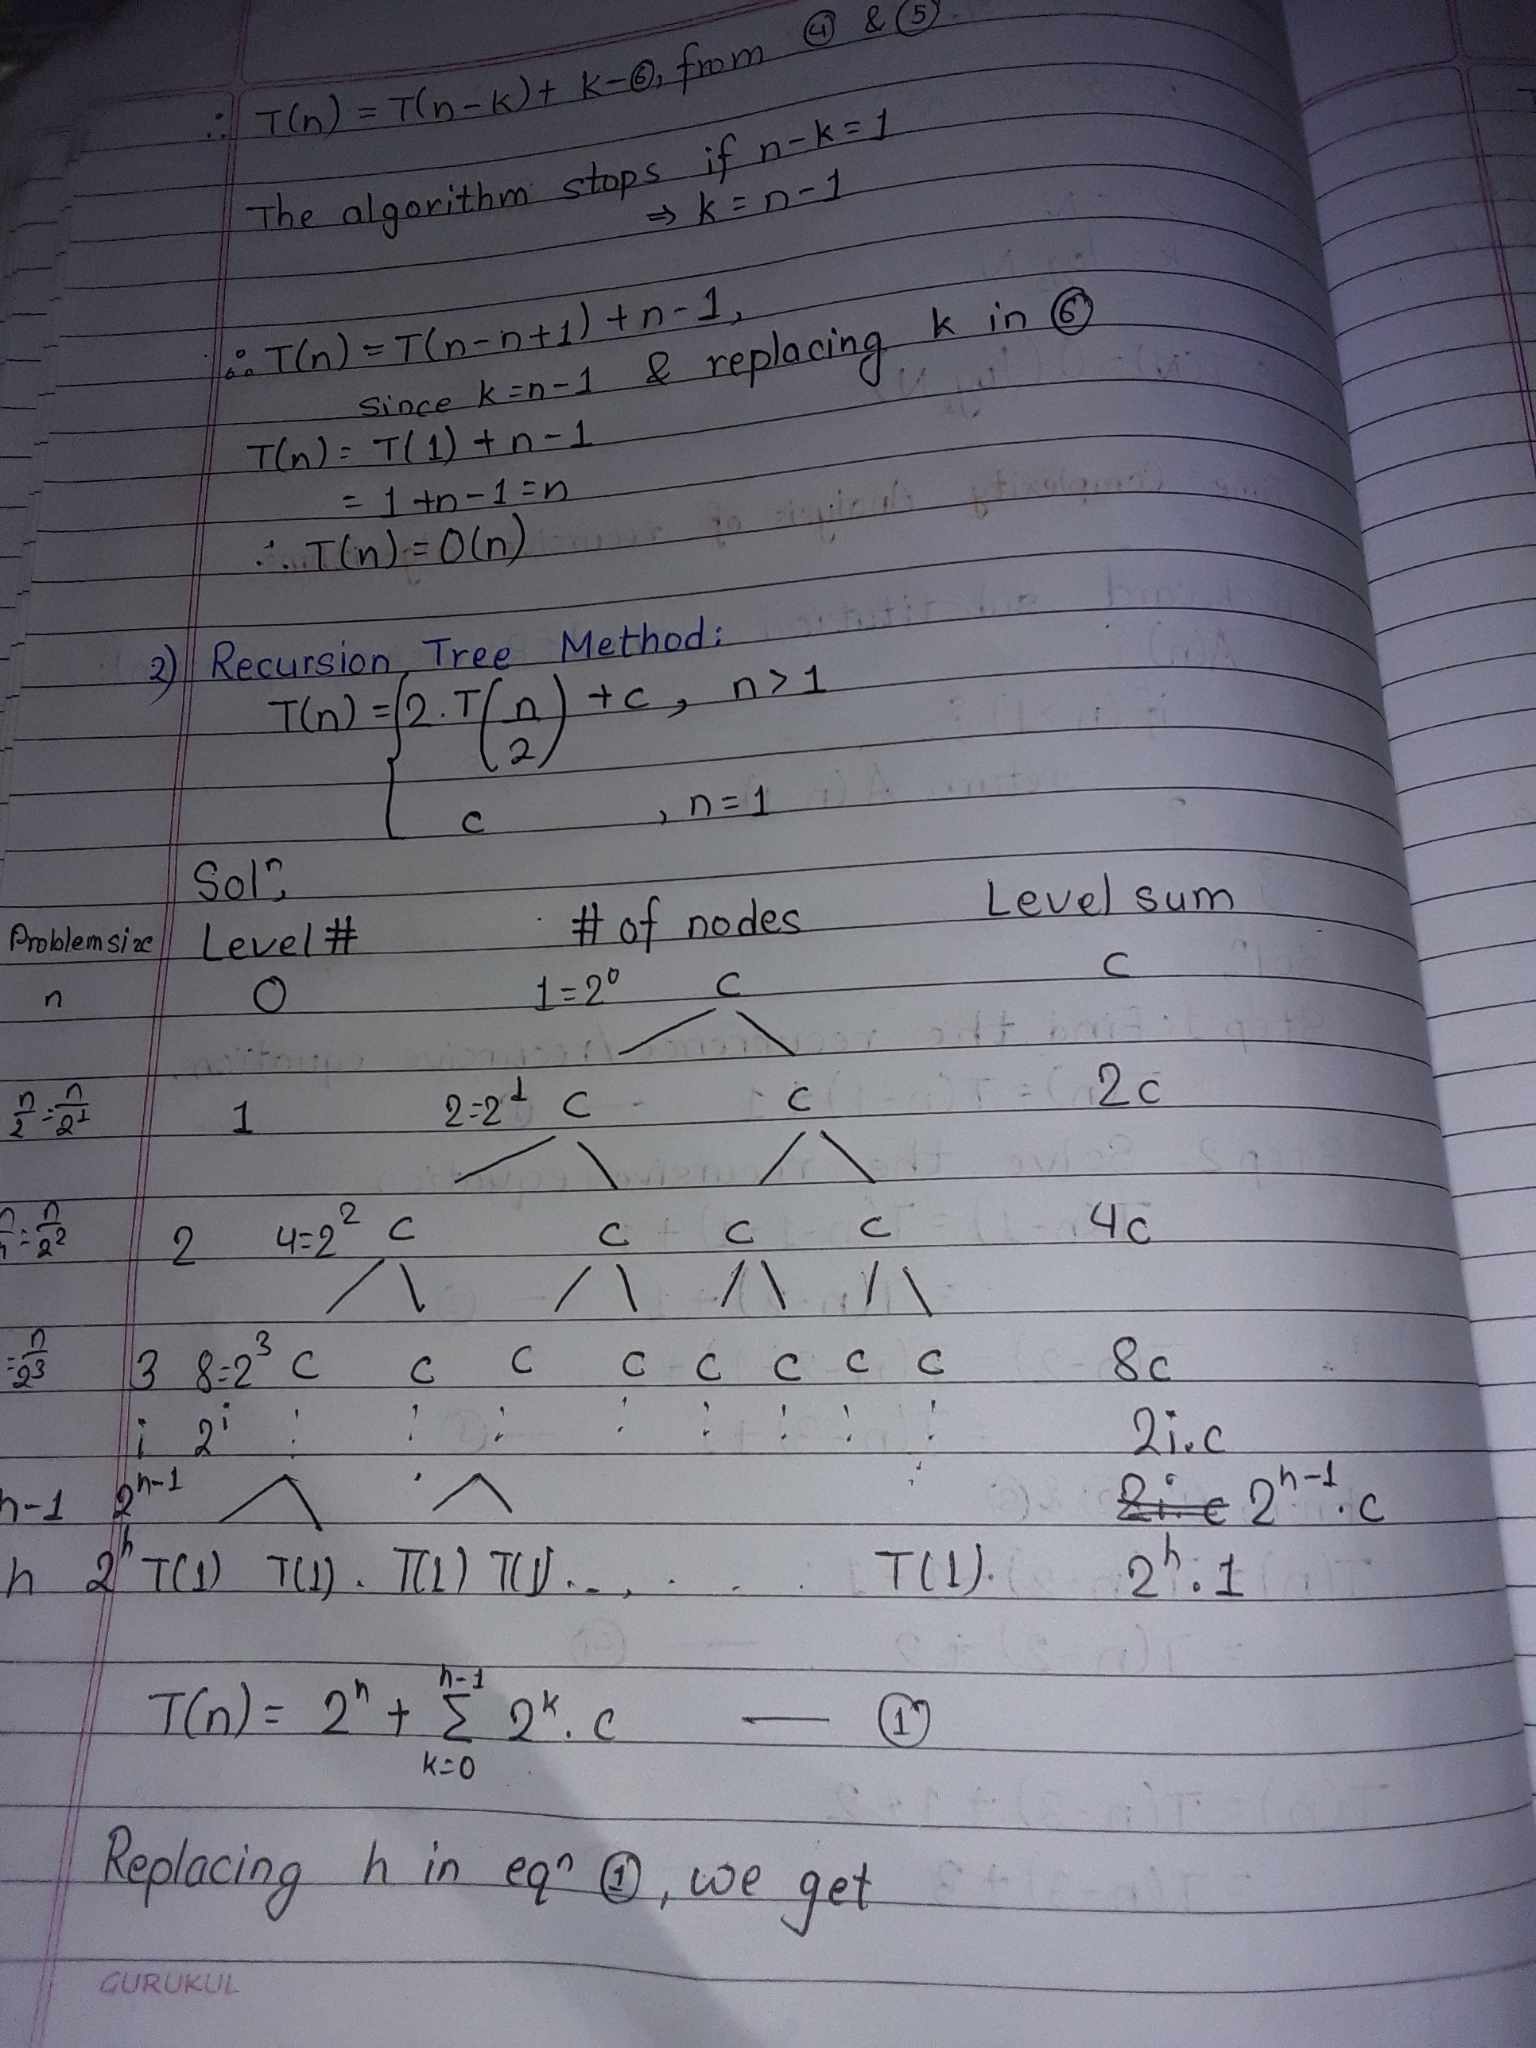 ∴ T(n) = T(n-k) + k - ⑥, from ④ & ⑤
The algorithm stops if n-k=1
⇒ k = n-1
∴ T(n) = T(n-n+1) + n-1,
since k=n-1 & replacing k in ⑥
T(n) = T(1) + n-1
= 1+n-1=n
∴ T(n) = O(n)
2) Recursion Tree Method:
T(n) = { 2.T(n/2) + c, n>1
c , n=1
Solⁿ,
Problem size Level # # of nodes Level sum
n 0 1=2⁰ c c
n/2 = n/2¹ 1 2=2¹ c c 2c
= n/2² 2 4=2² c c c c 4c
= n/2³ 3 8=2³ c c c c c c c c 8c
i 2ⁱ ⋮ ⋮ ⋮ ⋮ ⋮ ⋮ ⋮ ⋮ 2i.c
h-1 2ʰ⁻¹ 2i.c 2ʰ⁻¹.c
h 2ʰ T(1) T(1) . T(1) T(1) . . , . . . . T(1). 2ʰ.1
T(n) = 2ʰ + h-1 Σ k=0 2ᵏ.c — ①
Replacing h in eqⁿ ①, we get
GURUKUL